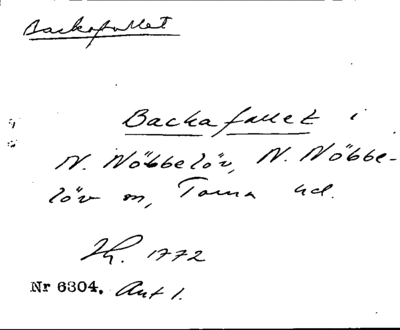 Backafallet
Backafallet i
N. Nöbbelöv, N. Nöbbe-
löv sn, Torna hd.
Hh. 1772
Nr 6304. Akt 1.